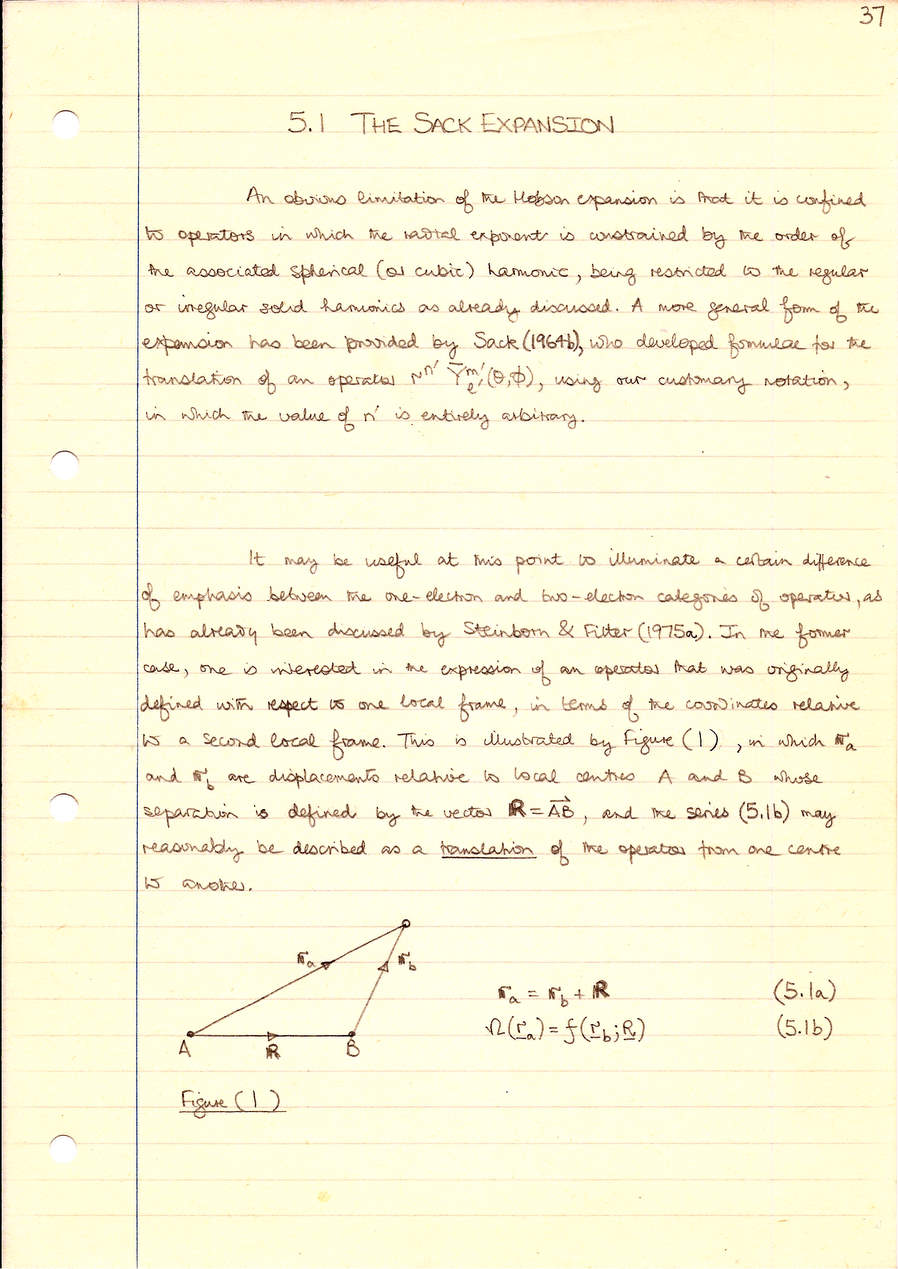 37
5.1 THE SACK EXPANSION
An obvious limitation of the Hobson expansion is that it is confined
to operators in which the radial exponent is constrained by the order of
the associated spherical (or cubic) harmonic, being restricted to the regular
or irregular solid harmonics as already discussed. A more general form of the
expansion has been provided by Sack (1964b), who developed formulae for the
translation of an operator r^n' Ȳ_l'^m'(θ,φ), using our customary notation,
in which the value of n' is entirely arbitrary.
It may be useful at this point to illuminate a certain difference
of emphasis between the one-electron and two-electron categories of operator, as
has already been discussed by Steinborn & Filter (1975a). In the former
case, one is interested in the expression of an operator that was originally
defined with respect to one local frame, in terms of the coordinates relative
to a second local frame. This is illustrated by Figure (1), in which r_a
and r_b are displacements relative to local centres A and B whose
separation is defined by the vector R = A⃗B⃗, and the series (5.1b) may
reasonably be described as a translation of the operator from one centre
to another.
r_a r_b
A R B
r_a = r_b + R (5.1a)
Ω(r_a) = f(r_b; R) (5.1b)
Figure (1)